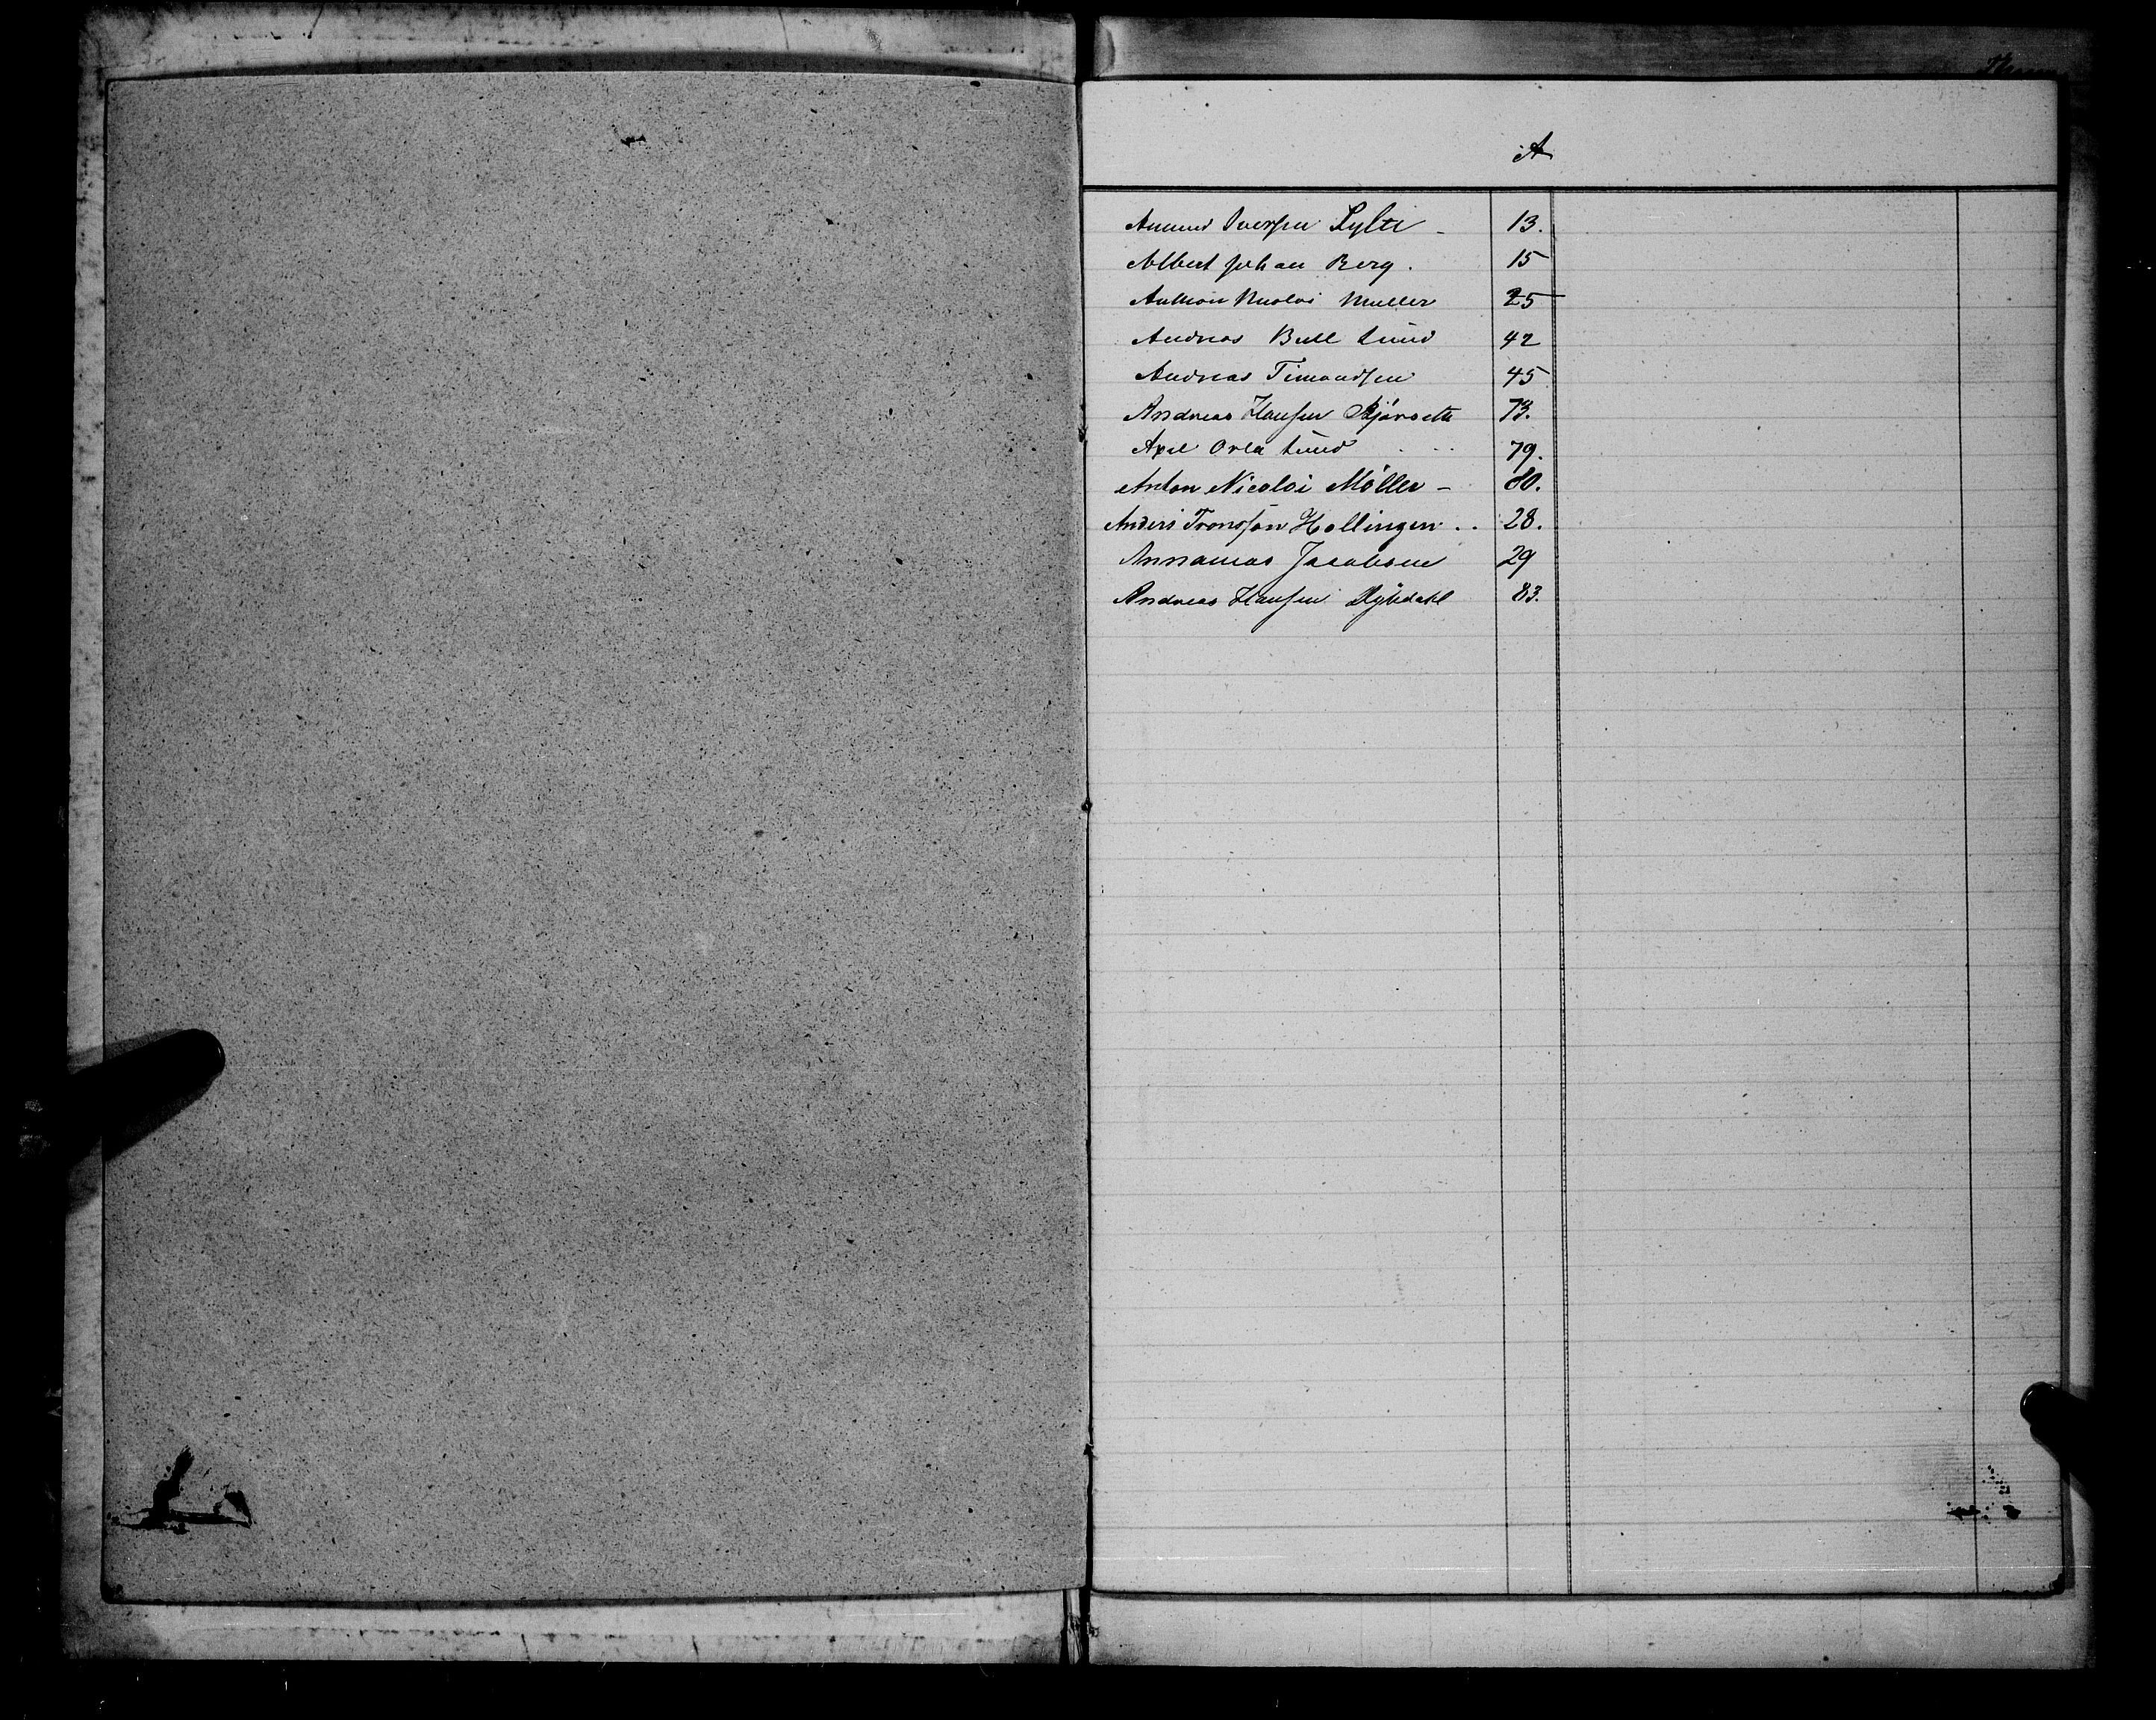 A
Amund Iversen Sylte - 13.
Albert Johan Berg. 15
Anthon Nicolai Muller 25
Andreas Bull Lund 42
Andreas Timandsen 45
Andreas Hansen 73.
Axel Orla Lund . . . 79.
Anton Nicolai Möller - 80.
Anders Hollingen . . 28.
Annanias Jacobsen 29
Andreas Hansen Dybdahl 83.